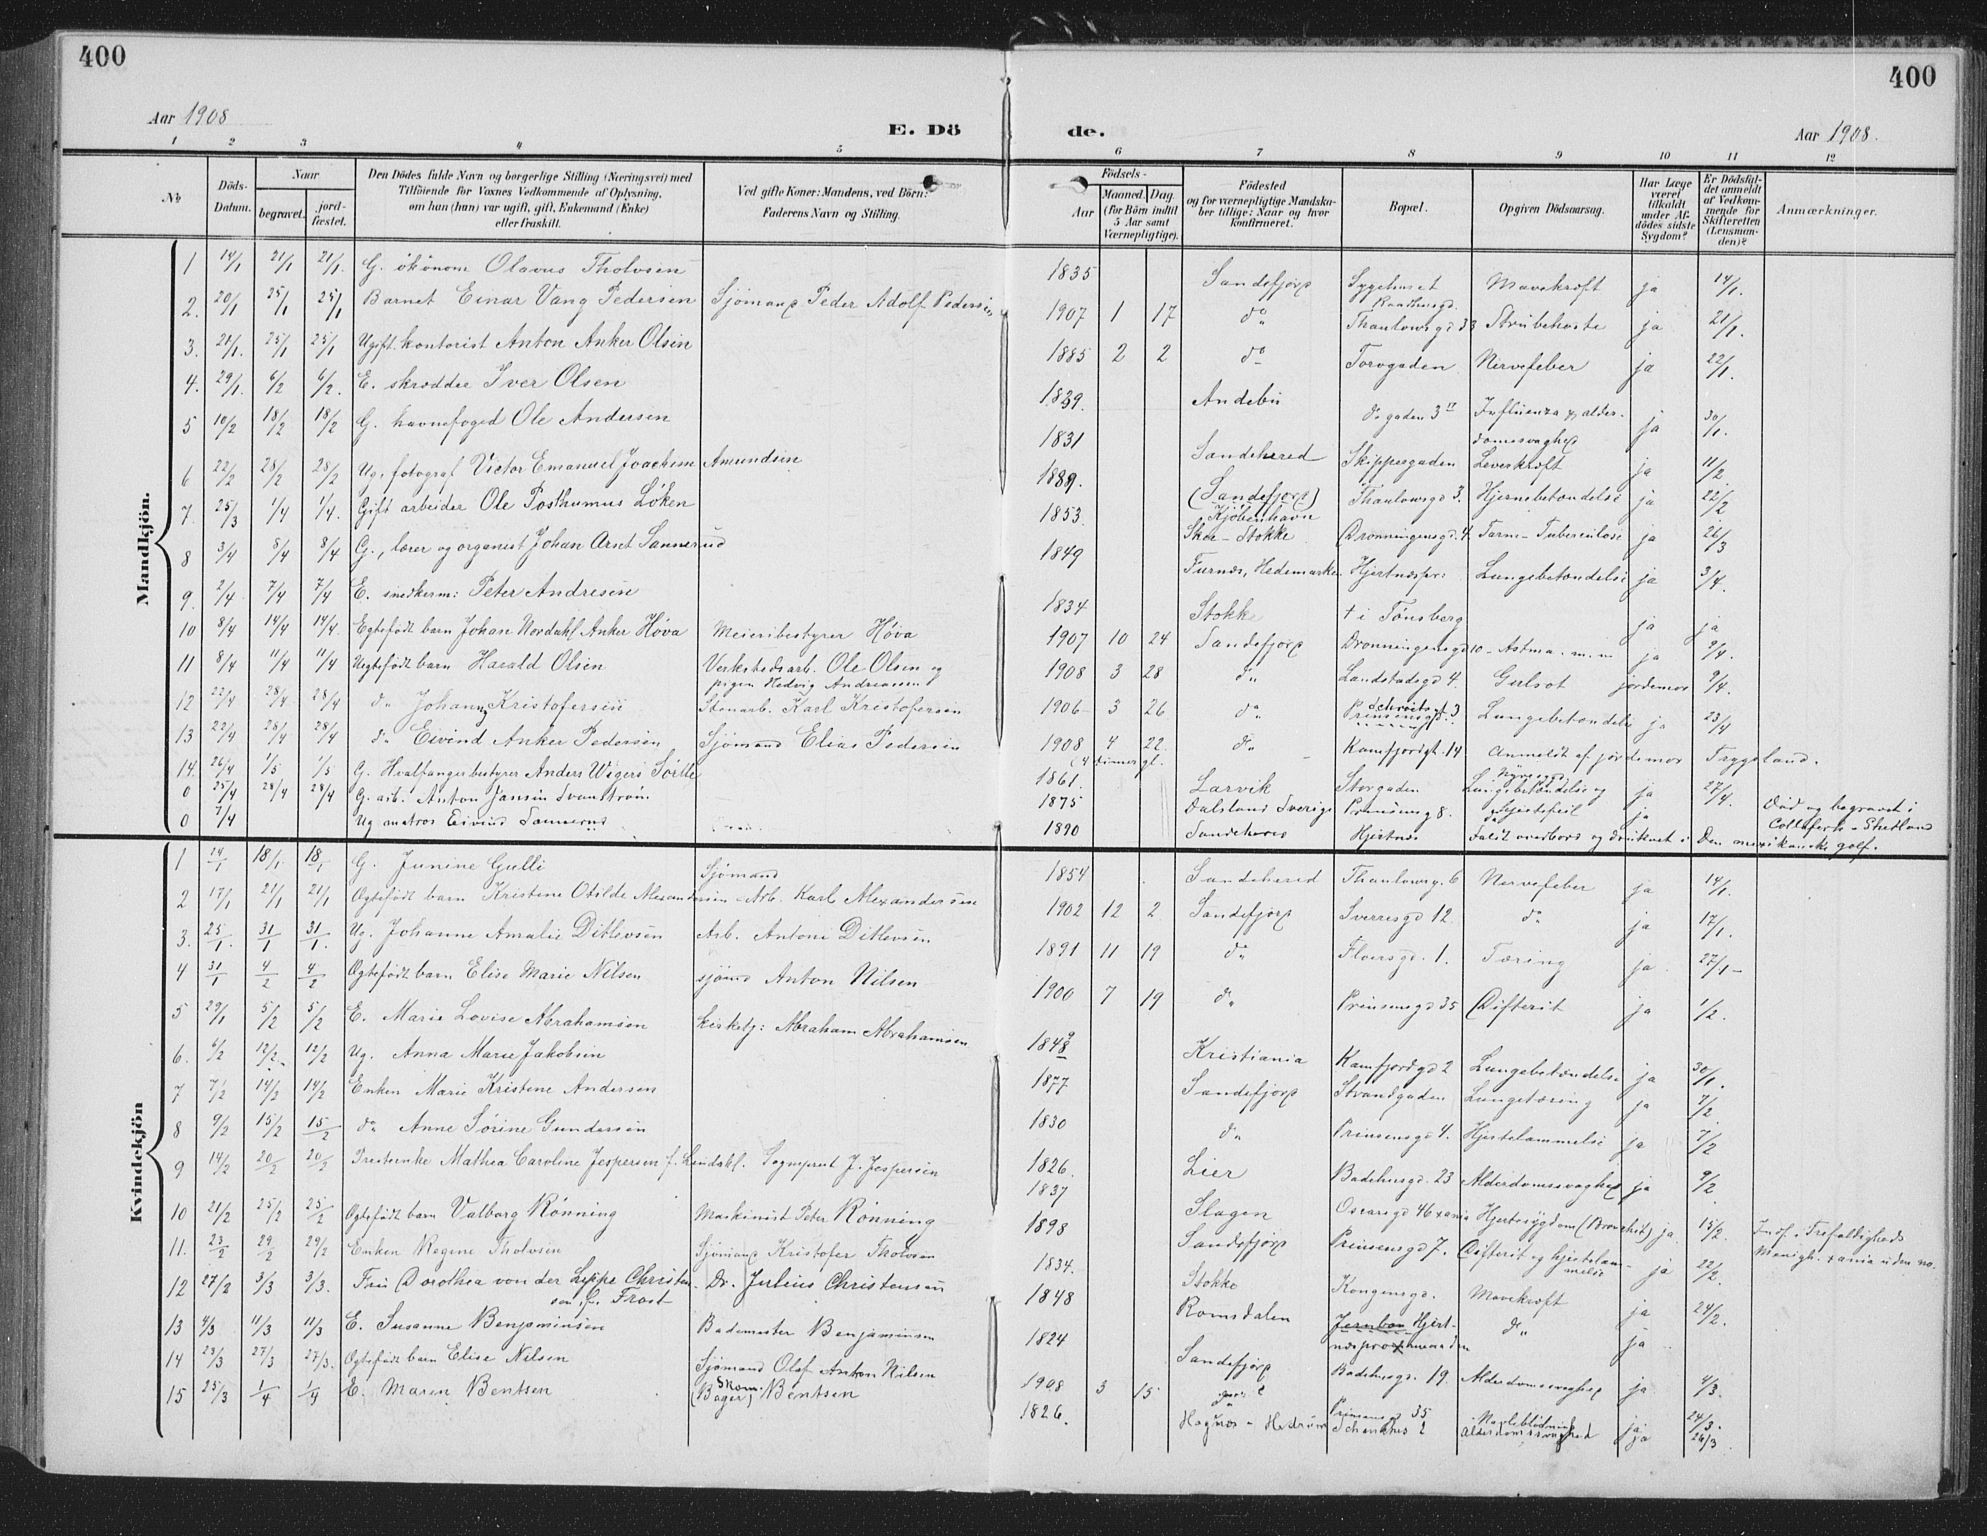 400
400
Aar 1908
E. Dö
de.
Aar 1908.
1 2 3 4 5 6 7 8 9 10 11 12
№
Döds-
Datum.
Naar
begravet.
jord-
fæstet.
Den Dödes fulde Navn og borgerlige Stilling (Næringsvei) med
Tilföiende for Voxnes Vedkommende af Oplysning,
om han (hun) var ugift, gift, Enkemand (Enke)
eller fraskilt.
Ved gifte Koner: Mandens, ved Börn:
Faderens Navn og Stilling.
Födsels-
Aar
Maaned. Dag.
(for Börn indtil
5 Aar samt
Værnepligtige).
Födested
og for værnepligtige Mandska-
ber tillige: Naar og hvor
konfirmeret.
Bopæl.
Opgiven Dödsaarsag.
Har Læge
været
tilkaldt
under Af-
dödes sidste
Sygdom?
Er Dödsfal-
det anmeldt
af Vedkom-
mende for
Skifteretten
(Lensman-
den)?
Anmærkninger.
Mandkjön.
1 14/1 21/1 21/1. G. økonom Olavus Tholvsen 1835 Sandefjord Sygehuset Mavekræft ja 14/1.
2. 20/1 25/1 25/1 Barnet Einar Vang Pedersen Sjömand Peder Adolf Pedersen 1907 1 17 do Thaulowsgd 33 Strubehoste ja 21/1.
3. 20/1. 25/1 25/1 Ugift kontorist Anton Anker Olsen 1885 2 2 do Torvgaden Nervefeber ja 22/1.
4. 29/1. 6/2 6/2. E. skrædder Iver Olsen 1839. Andebu do gaden 3 Influenza & alder-
domssvaghed ja 30/1.
5 10/2 18/2 18/2 G. havnefoged Ole Andersen 1831 Sandeherred Skippergaden Leverkræft ja 11/2
6 22/2 28/2 28/2 Ug. fotograf Victor Emanuel Joachim Amundsen 1889. (Sandefjord)
Kjøbenhavn Thaulowsgd 3. Hjernebetændelse ja 22/2
7. 25/3 1/4 1/4. Gift arbeider Ole Posthumus Løken 1853. Skee - Stokke Dronningensgd. 4 Tarm-Tuberculose ja 26/3
8 3/4 8/4 8/4 G., lærer og organist Johan Arnt Sannerud 1849 Furnes, Hedemarken Hjertnespr: Lungebetændelse ja 3/4.
9. 2/4 7/4 7/4 E. snedkerm: Peter Andresen 1834 Stokke † i Tønsberg ja ja
10 8/4 14/4 14/4. Egtefødt barn Johan Nordahl Anker Høva Meieribestyrer Høva 1907 10 24 Sandefjord Dronningensgd 10 Astma. m. m ja 9/4.
11 8/4 11/4 11/4 Uegtefødt barn Harald Olsen Verkstedsarb. Ole Olsen og
pigen Hedvig Andreassen 1908 3 28 do Landstadsgd 4. Gulsot jordemor 9/4.
12 22/4 28/4 28/4 do Johan Kristofersen Stenarb. Karl Kristofersen 1906 3 26 do Prinsensgd. 3 Lungebetændelse ja 23/4
13 22/4 28/4 28/4 do Eivind Anker Pedersen Sjømand Elias Pedersen 1908 4 22. do Kamfjordgt. 14 Anmeldt af jordemor Trygeland.
14. 26/4 1/5 1/5 G. Hvalfangerbestyrer Anders Wigers Sörlle 1861. Larvik Storgaden Lungebetændelse og ja 27/4. Död og begravet i
0 25/4 28/4 28/4 G. arb. Anton Jansen Svanström 1875 Dalsland Sverige Prinsensg 8. Hjertefeil ja Collaferth - Shetland
0 7/4 Ug matros Eivind Sannerud 1890 Sandeherred Hjertnes Faldt overbord og druknet i Den mexikanske golf.
Kvindekjön
1 18/1 18/1 G. Junine Gulli Sjømand 1854 Sandeherred Thaulowsg. 6 Nervefeber ja 14/1.
2 17/1 21/1 21/1 Egtefødt barn Kristene Otilde Alexandersen Arb. Karl Alexandersen 1902 12 2 Sandefjord Sverresgd 12. do ja 17/1.
3. 25/1. 31/1 31/1. Ug. Johanne Amalie Ditlevsen Arb. Antoni Ditlevsen 1891 11 19 do Floersgd. 1. Tæring ja 27/1
4 31/1 4/2 4/2 Egtefødt barn Elise Marie Nilsen sjømd Anton Nilsen 1900 7 19 do Prinsensgd 35 Difterit ja 1/2.
5 29/1 5/2 5/2 E. Marie Lovise Abrahamsen kirketj: Abraham Abrahamsen 1848 Kristiania Kamfjordgd 2 Lungebetændelse ja 30/1.
6. 6/2 12/2 12/2 Ug. Anna Marie Jakobsen 1877 Sandefjord Strandgaden Lungetæring ja 7/2
7 7/2 14/2 14/2 Enken Marie Kristene Andersen 1830 do Prinsensgd 4. Hjertelammelse ja 7/2
8 9/2 15/2 15/2 do Anne Sørine Gundersen 1826. Lier Badehusgd. 23 Alderdomssvaghed ja 9/2
9 14/2 20/2 20/2 Presteenke Mathea Caroline Jespersen f. Lindahl. Sogneprest J. Jespersen 1837 Slagen Oscarsgd 46 xania Hjertesygdom (Bronchit) ja. 15/2. Indf. i Trefoldigheds
Menigh. xania uden no.
10 21/2 25/2 25/2 Egtefødt barn Valborg Rønning Maskinist Peter Rønning 1898 Sandefjord Prinsensgd 7. Difterit og hjertelam-
melse ja 22/2.
11. 23/2 29/2 29/2 Enken Regine Tholvsen Sjömand Kristofer Tholvsen 1834. Stokke Kongensgd. Mavekræft ja 24/2.
12 27/2 3/3 3/3. Fru Dorothea von der Lippe Christen-
sen f. Frost Dr. Julius Christensen 1848 Romsdalen Jernban Hjert-
do ja
13 4/3 11/3 11/3 E. Susanne Benjaminsen Bademester Benjaminsen 1824 Sandefjord Badehusgd. 19. Alderdomssvaghed ja 4/3.
14 23/3 27/3 27/3. Egtefødt barn Elise Nilsen Sjømand Olaf Anton Nilsen 1908 3 15 do Prinsensgd 35 Navleblödning ja 24/3.
15 25/3 1/4 1/4 E. Maren Bentsen (Bager) Bentsen 1826. Hagnæs - Hedrum 2 Alderdomssvaghed ja 26/3.